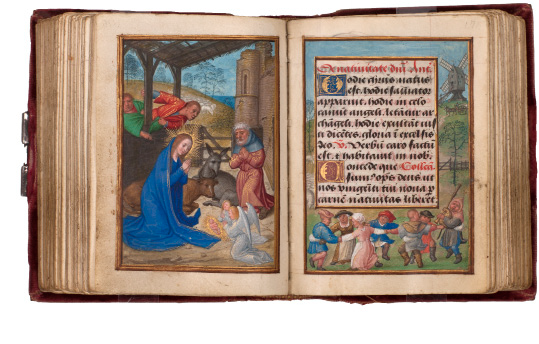 De nativitate dn̄i. Ant.
Hodie cristus natus
est. hodie salvator
apparuit. hodie in celo
canūt angeli. letātur ar
chāgeli. hodie exultāt iusti
dicētes. gloria ī excelsis
deo. V. Verbū caro factū
est. et habitavit in nob.
Concede que Collc̄a
sum? op̄s deus ut
nos vnigeniti tui nova p
carnē nativitas liberet